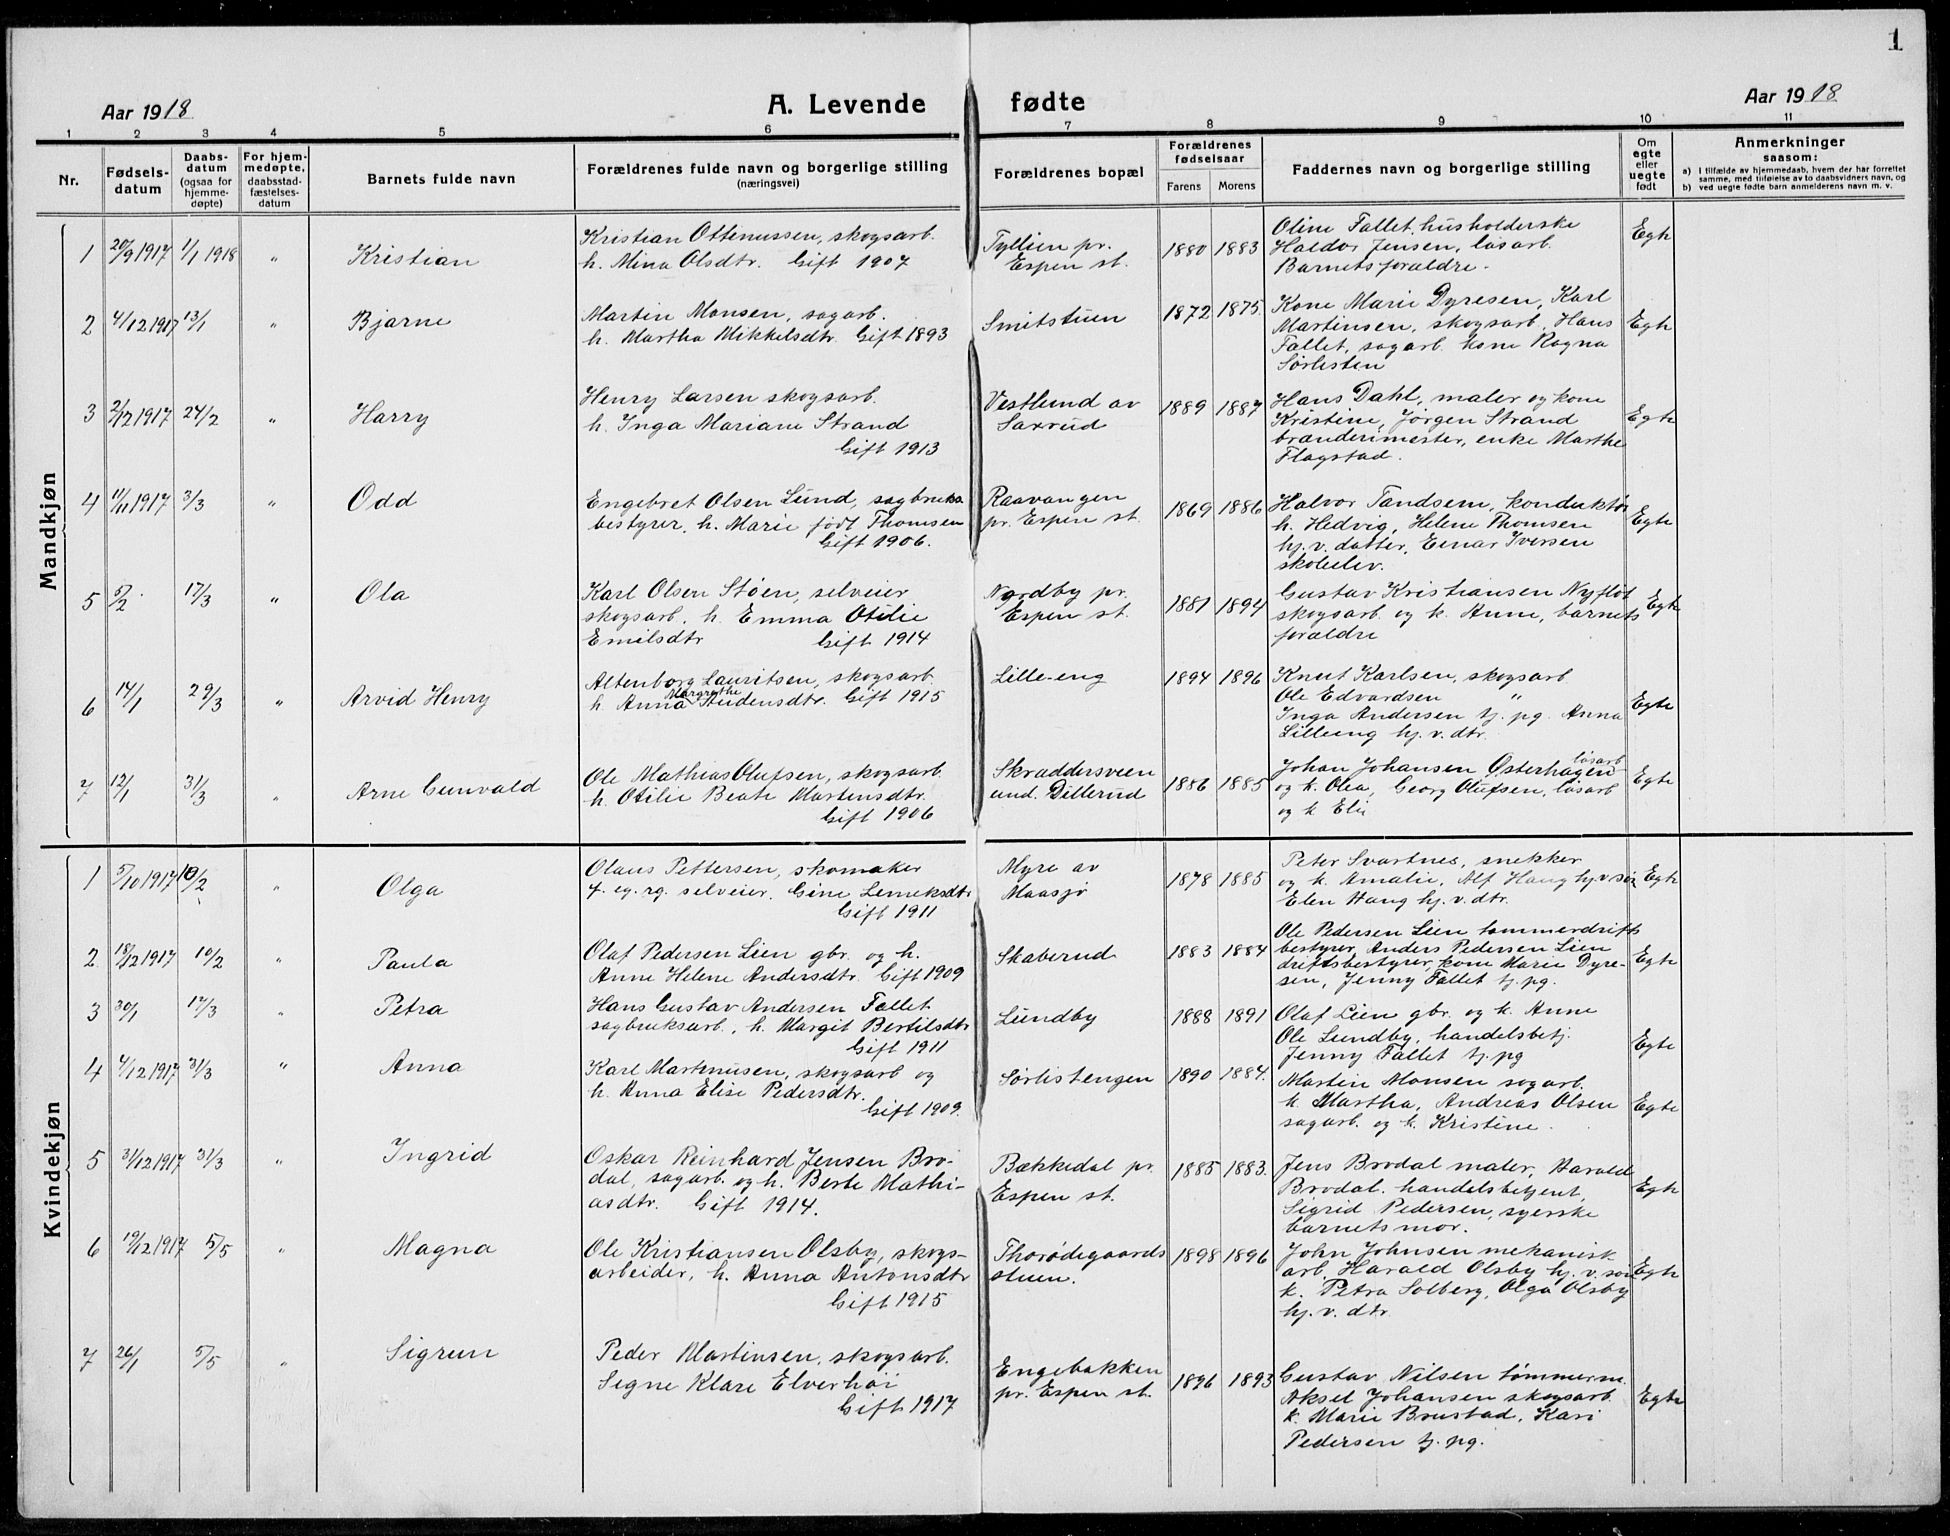 1
Aar 1918
A. Levende fødte
Aar 1918
1 2 3 4 5 6 7 8 9 10 11
Nr.
Fødsels-
datum
Daabs-
datum
(ogsaa for
hjemme-
døpte)
For hjem-
medøpte,
daabsstad-
fæstelses-
datum
Barnets fulde navn
Forældrenes fulde navn og borgerlige stilling
(næringsvei)
Forældrenes bopæl
Forældrenes
fødselsaar
Farens Morens
Faddernes navn og borgerlige stilling
Om
egte
eller
uegte
født
Anmerkninger
saasom:
a) I tilfælde av hjemmedaab, hvem der har forrettet
samme, med tilføielse av to daabsvidners navn, og
b) ved uegte fødte barn anmelderens navn m. v.
Mandkjøn
1 20/9 1917 1/1 1918 " Kristian
Kristian Ottenussen, skogsarb.
h. Mina Olsdtr. Gift 1907
Tyllien pr.
Espen st.
1880 1883
Oline Fallet, husholderske
Haldor Jensen, løsarb.
Barnets forældre.
Egte
2 4/12 1917 13/1 " Bjarne
Martin Monsen, sagarb.
h. Martha Mikkelsdtr. Gift 1893
Smitstuen
1872 1875.
Kone Marie Dyresen, Karl
Martinsen, skogsarb. Hans
Fallet, sagarb. kone Ragna
Sørlisten
Egte
3 2/12 1917 24/2 " Harry
Henry Larsen skogsarb.
h. Inga Mariane Strand
Gift 1913
Vestlund av
Saxrud
1889 1887
Hans Dahl, maler og kone
Kristine, Jørgen Strand
brænderimester, enke Marthe
Flagstad.
Egte
4 11/11 1917 3/3 " Odd
Engebret Olsen Lund, sagbruks
bestyrer, h. Marie født Thomsen
Gift 1906.
Raavangen
pr. Espen st.
1869 1886
Halvor Tandsem, konduktør
h. Hedvig, Helene Thomsen
hj. v. datter, Einar Iversen
skoleelev.
Egte
5 5/2 17/3 " Ola
Karl Olsen Støen, selveier
skogsarb. h. Emma Otilie
Emilsdtr Gift 1914
Nordby pr.
Espen st.
1881 1894
Gustav Kristiansen Nyfløt
skogsarb. og k. Anne, barnets
forældre
Egte
6 14/1 29/3 " Arvid Henry
Altenborg Lauritsen, skogsarb.
h. Anna Margrethe Hudensdtr. Gift 1915
Lille-eng
1894 1896
Knut Karlsen, skogsarb
Ole Edvardsen "
Inga Andersen tj. pg. Anna
Lilleeng hj. v. dtr.
Egte
7 12/1 31/3 " Arne Gunvald
Ole Mathias Olufsen, skogsarb.
h. Otilie Beate Martensdtr.
Gift 1906
Skræddersveen
und. Dillerud
1886 1885
Johan Johansen Østerhagen løsarb
og k. Olea, Georg Olufsen, løsarb
og k Eli
Egte
Kvindekjøn
1 5/10 1917 10/2 " Olga
Olaus Pettersen, skomaker
f. eg. rg. selveier. Gine Lemeksdtr
Gift 1911
Myre av
Maasjø
1878 1885
Peter Svartnes, snekker
og k. Amalie, Alf Haug hj. v. søn
Elen Haug hj. v. dtr.
Egte
2 18/12 1917 10/2 " Paula
Olaf Pedersen Lien gbr. og h.
Anne Helene Andersdtr. Gift 1909
Skaberud
1883 1884
Ole Pedersen Lien tømmerdrift
bestyrer, Anders Pedersen Lien
driftsbestyrer, kone Marie Dyre-
sen, Jenny Fallet tj. pg.
Egte
3 30/1 17/3 " Petra
Hans Gustav Andersen Fallet
sagbruksarb., h. Margit Bertilsdtr
Gift 1911
Lundby
1888 1891
Olaf Lien gbr. og k. Anne
Ole Lundby, handelsbetj.
Jenny Fallet tj. pg
Egte
4 4/12 1917 31/3 " Anna
Karl Martinusen, skogsarb og
h. Anna Elise Pedersdtr.
Gift 1909.
Sørlistengen
1890 1884.
Martin Monsen sagarb.
k. Martha, Andreas Olsen
sagarb. og k. Kristine.
Egte
5 31/12 1917 31/3 " Ingrid
Oskar Reinhard Jensen Bro-
dal, sagarb. og h. Berte Mathi-
asdtr. Gift 1914.
Bækkedal pr.
Espen st.
1885 1883.
Jens Brodal maler, Harald
Brodal. handelsbetjent,
Sigrid Pedersen, syerske
barnets mor.
Egte
6 19/12 1917 5/5 " Magna
Ole Kristiansen Olsby, skogs-
arbeider, h. Anna Antonsdtr
Gift 1915
Thorødegaards
stuen.
1898 1896
John Johnsen mekanisk
arb. Harald Olsby hj. v. søn
k. Petra Solberg, Olga Olsby
hj. v. dtr.
Egte
7 26/1 5/5 " Sigrun
Peder Martinsen, skogsarb.
Signe Klare Elverhøi
Gift 1917
Engebakken
pr. Espen st.
1896 1893
Gustav Nilsen tømmerm.
Aksel Johansen skogsarb.
k. Marie Brustad, Kari
Pedersen tj. pg.
Egte